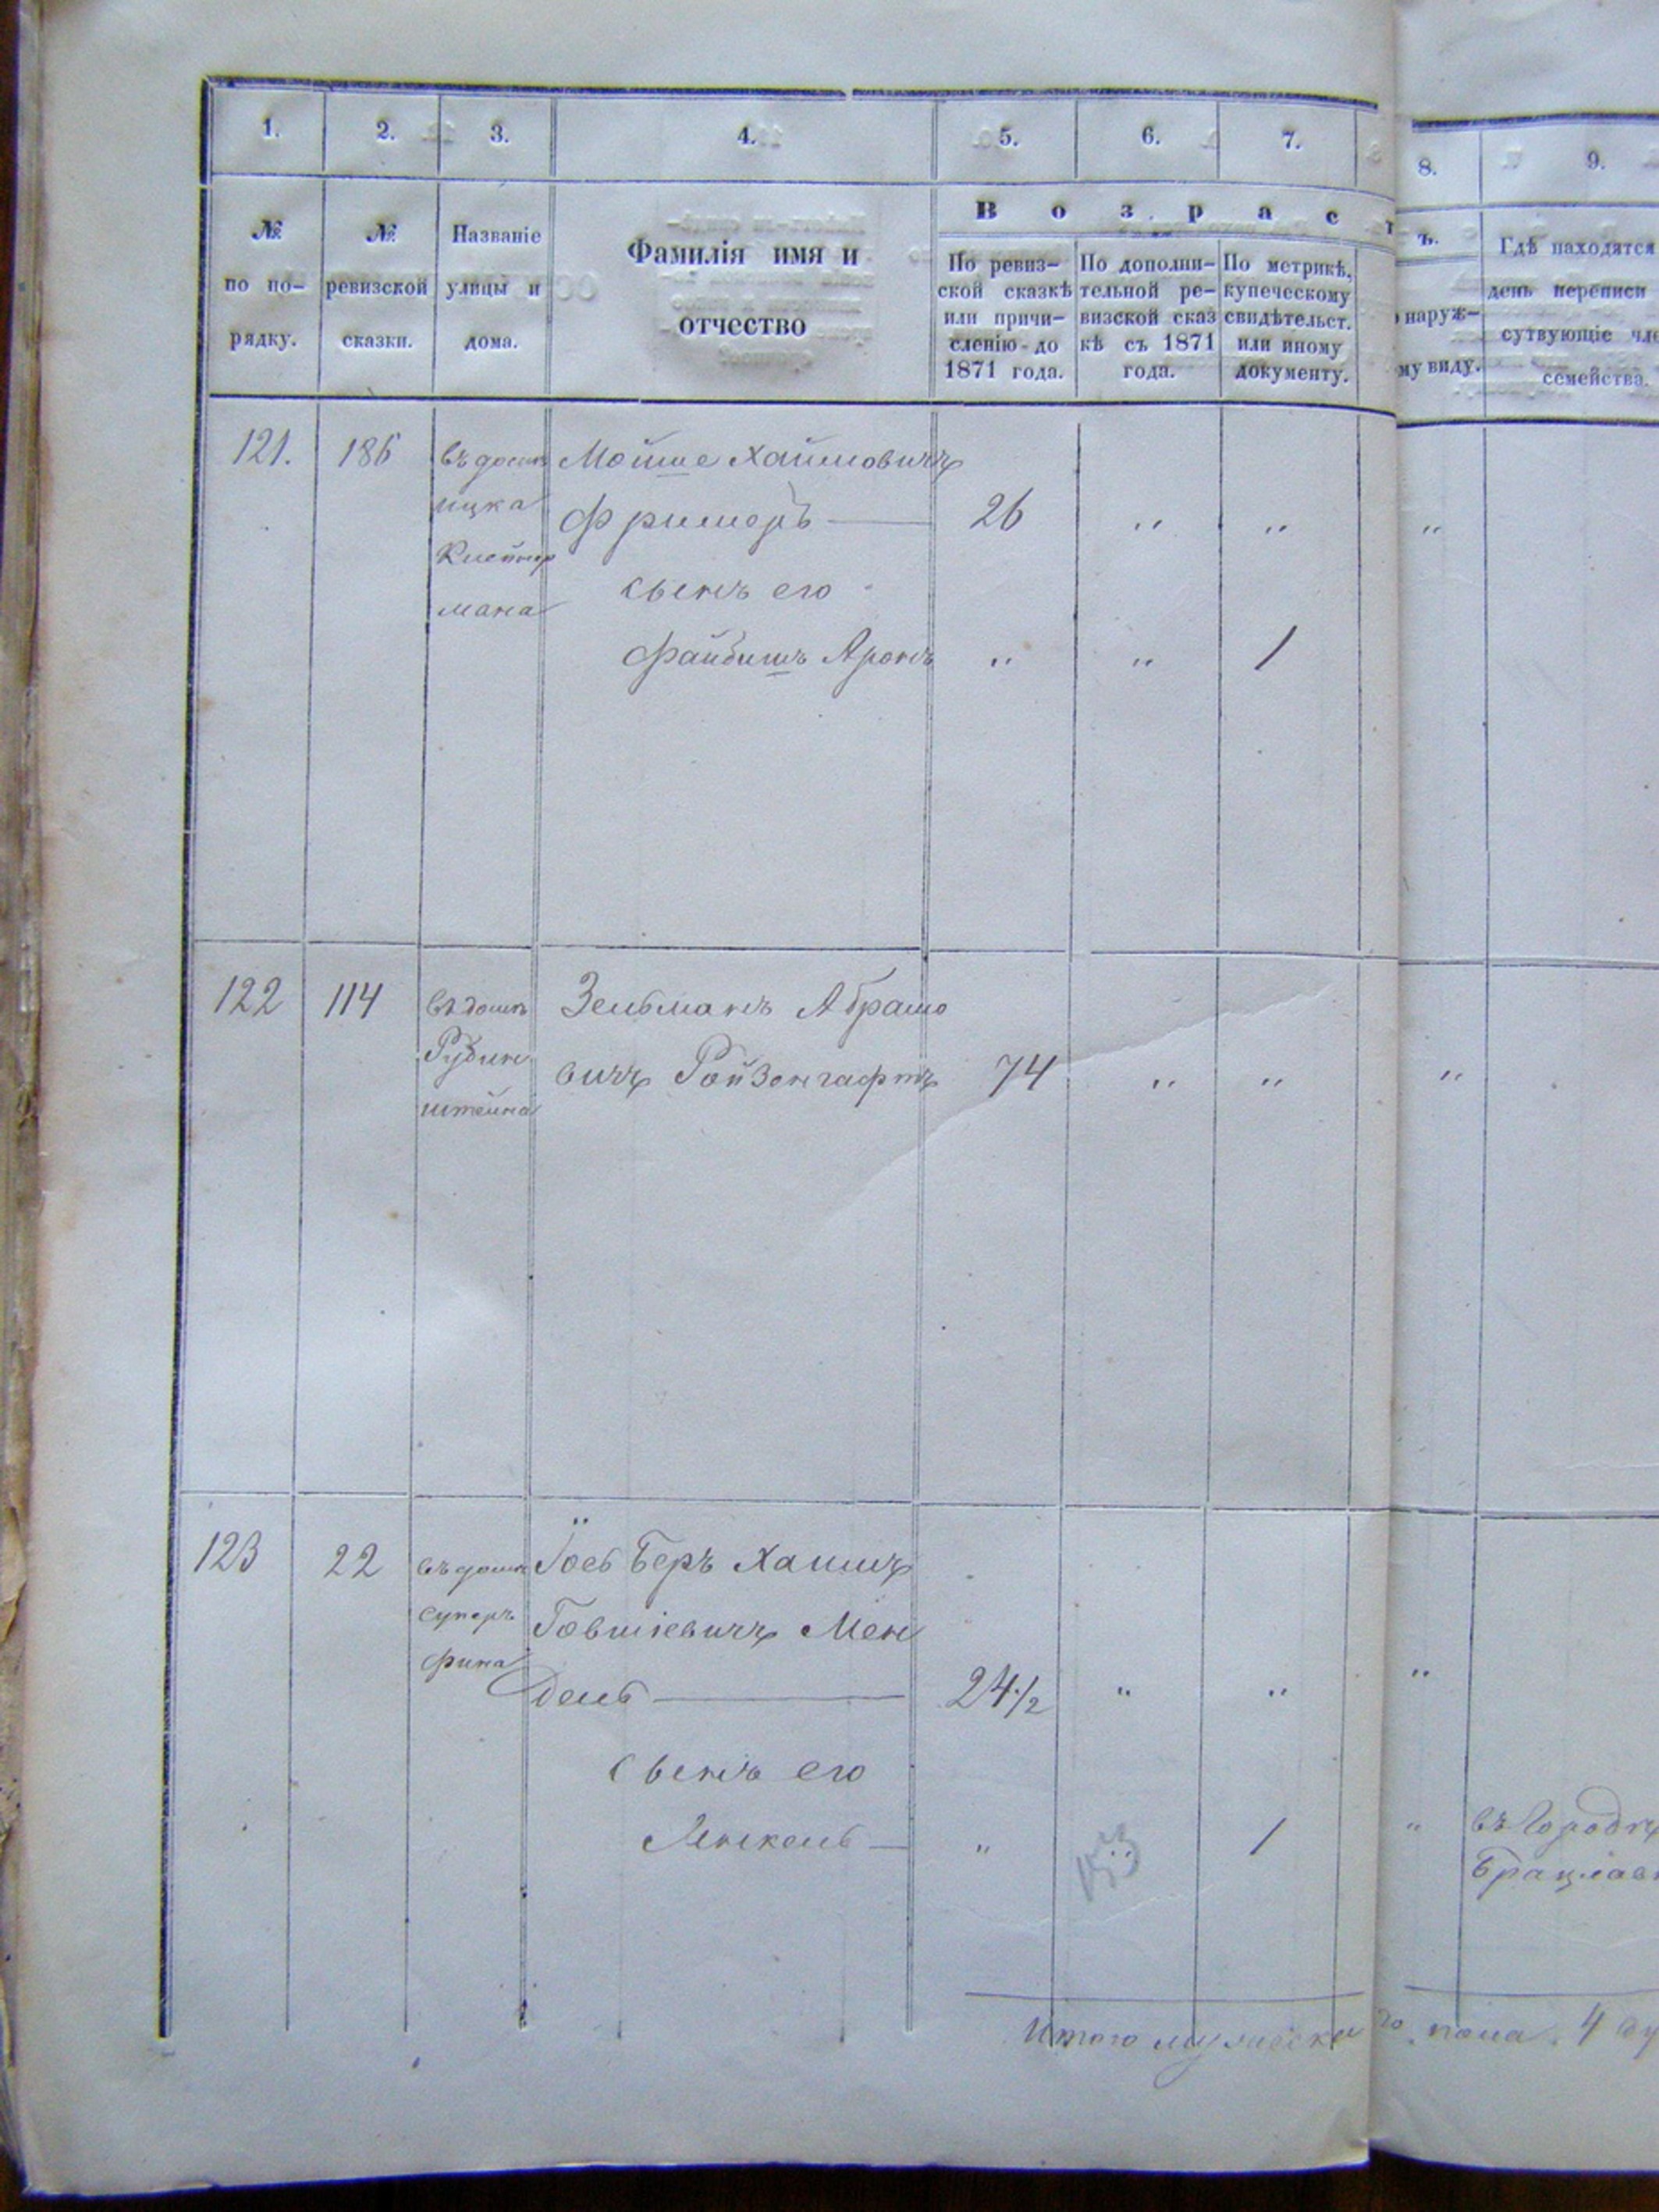 1. 2. 3. 4. 5. 6. 7. 8. 9.
№ по по-рядку.
№ ревизской сказки.
Названіе улицы и дома.
Фамилія имя и отчество
Возрастъ.
По ревиз-ской сказкѣ или причи-сленію до 1871 года.
По дополни-тельной ре-визской сказкѣ съ 1871 года.
По метрикѣ, купеческому свидѣтельст. или иному документу.
наруж-
му виду.
Гдѣ находятся
день переписи
сутвующіе чле
семейства.
121. 186 Мошше Хаимовичъ
ицка Фримеръ 26 „ „ „
сынъ его
мана
Файбишъ Аронъ „ „ 1
122 114 въ домѣ Зельманъ Абрамо
Рубин вичъ Ройзенгафтъ 74 „ „ „
штейна
123 22 въ домѣ Іосъ Беръ Хаимъ
Говшіевичъ Мен
фина
дель 24 1/2 „ „ „
сынъ его
Янкель „ „ 1 „ въ Городкѣ
Брацлав
Итого мужеска го пола 4 ду